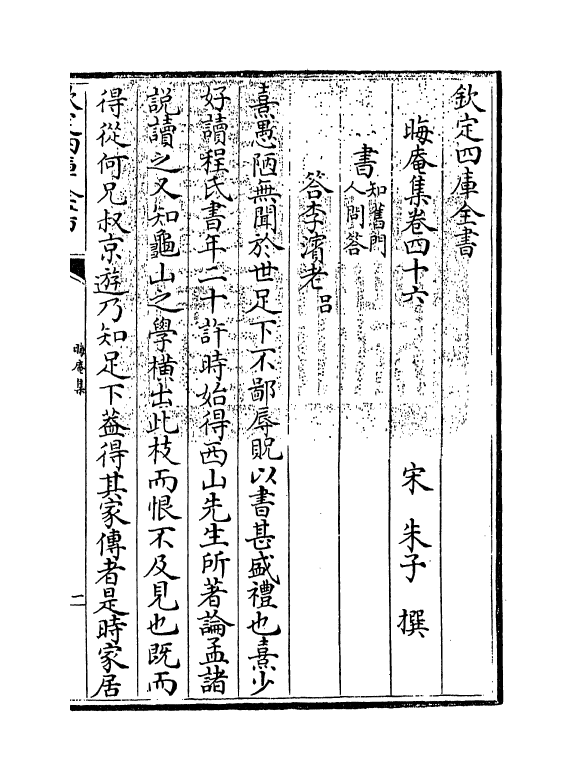 欽定四庫全書
晦庵集卷四十六
宋 朱子 撰
書知舊門人問答
答李濱老呂
熹愚陋無聞於世足下不鄙辱貺以書甚盛禮也熹少
好讀程氏書年二十許時始得西山先生所著論孟諸
說讀之又知龜山之學橫出此枝而恨不及見也既而
得從何兄叔京遊乃知足下蓋得其家傳者是時家居
晦庵集